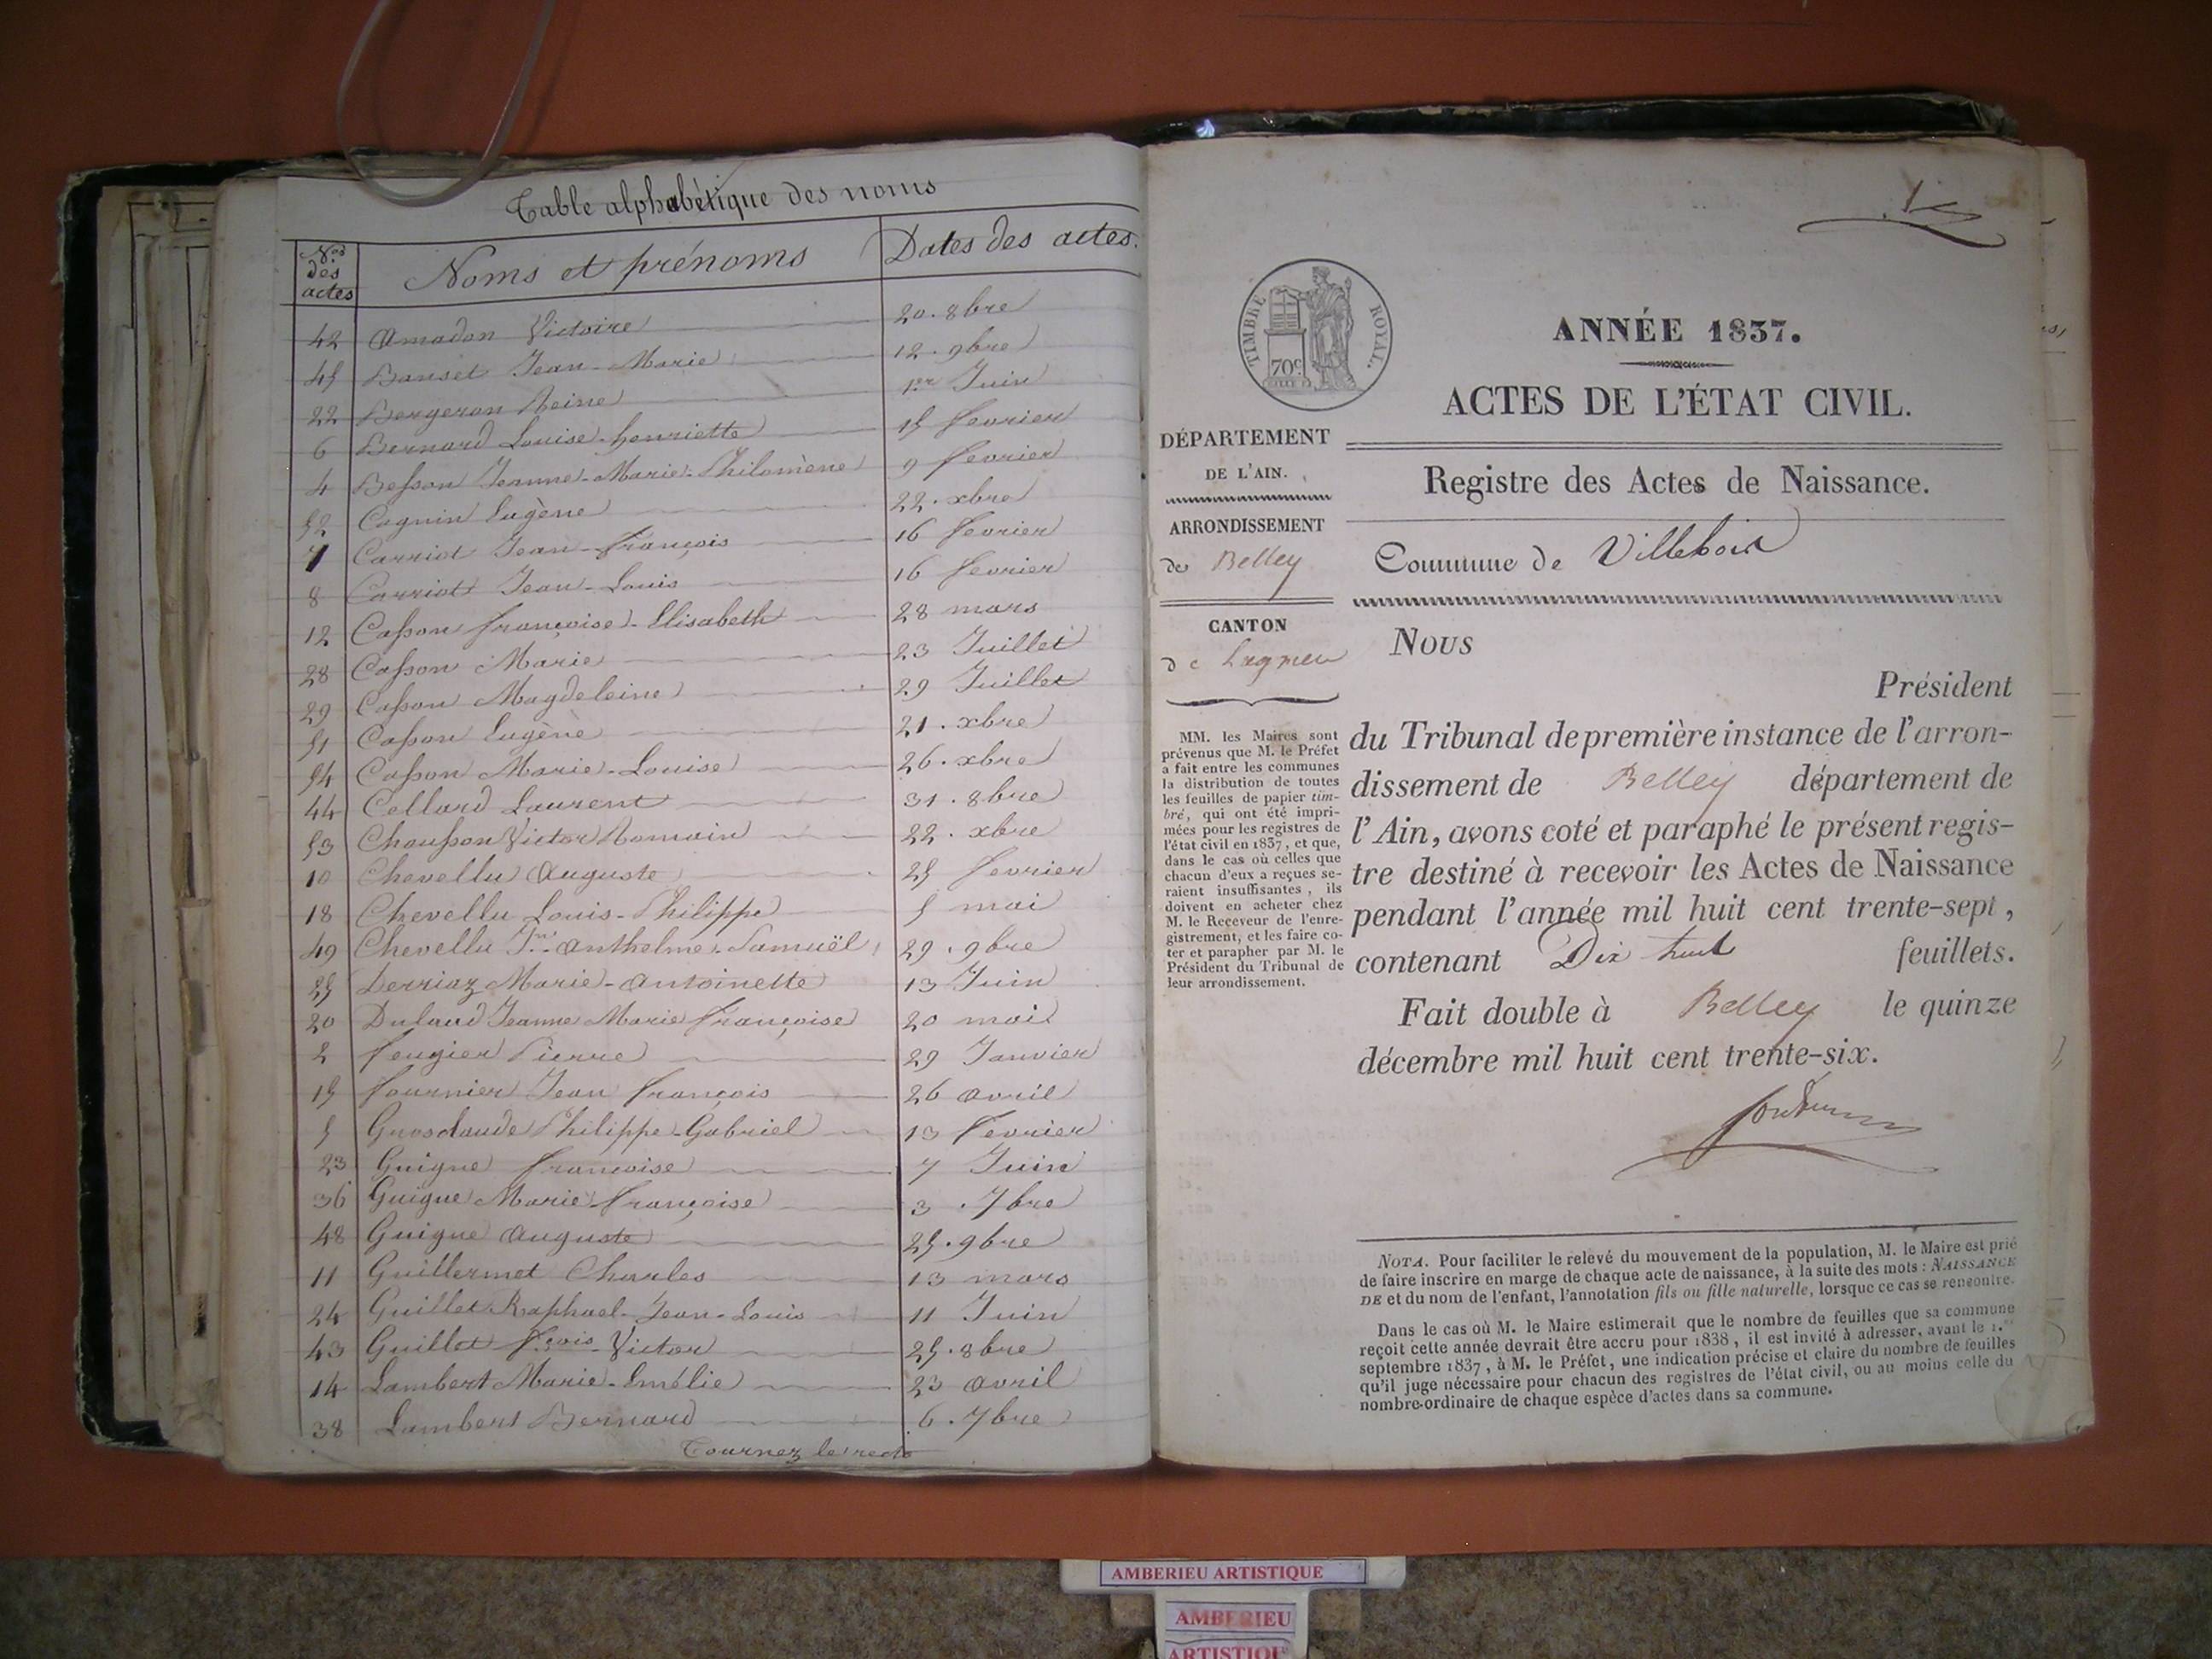 Table alphabétique des noms
Nos des actes
Noms et prénoms
Dates des actes.
42 Amadon Victoire 20. 8bre
45 Banset Jean-Marie 12. 9bre
22 Bergeron Reine 1er Juin
6 Bernard Louise-henriette 15 fevrier
4 Besson Jeanne-Marie-Philomène 9 fevrier
52 Cagnin Eugène 22. xbre
7 Carriot Jean-françois 16 fevrier
8 Carriot Jean-Louis 16 fevrier
12 Casson françoise-Elisabeth 28 mars
28 Casson Marie 23 Juillet
29 Casson Magdeleine 29 Juillet
51 Casson Eugène 21. xbre
54 Casson Marie-Louise 26. xbre
44 Cellard Laurent 31. 8bre
53 Chausson Victor Romain 22. xbre
10 Chevellu Auguste 25 fevrier
18 Chevellu Louis-Philippe 5 mai
49 Chevellu Jn Anthelme-Samuël 29. 9bre
25 Derriaz Marie-Antoinette 13 Juin
20 Dulaud Jeanne Marie françoise 20 mai
2 feugier Pierre 29 Janvier
15 fournier Jean françois 26 avril
5 Grosclaude Philippe-Gabriel 13 fevrier
23 Guigue françoise 7 Juin
36 Guigue Marie-françoise 3. 7bre
48 Guigue Auguste 25. 9bre
11 Guillermet Charles 13 mars
24 Guillet Raphael-Jean-Louis 11 Juin
43 Guillet fçois-Victor 25. 8bre
14 Lambert Marie-Emélie 23 avril
38 Lambert Bernard 6. 7bre
Tournez le recto
TIMBRE ROYAL.
70c
ANNÉE 1837.
ACTES DE L'ÉTAT CIVIL.
DÉPARTEMENT
DE L'AIN.
ARRONDISSEMENT
de Belley
CANTON
de Lagnieu
MM. les Maires sont
prévenus que M. le Préfet
a fait entre les communes
la distribution de toutes
les feuilles de papier tim-
bré, qui ont été impri-
mées pour les registres de
l'état civil en 1837, et que,
dans le cas où celles que
chacun d'eux a reçues se-
raient insuffisantes, ils
doivent en acheter chez
M. le Receveur de l'enre-
gistrement, et les faire co-
ter et parapher par M. le
Président du Tribunal de
leur arrondissement.
Registre des Actes de Naissance.
Commune de Villebois
Nous
Président
du Tribunal de première instance de l'arron-
dissement de Belley département de
l'Ain, avons coté et paraphé le présent regis-
tre destiné à recevoir les Actes de Naissance
pendant l'année mil huit cent trente-sept,
contenant Dix huit feuillets.
Fait double à Belley le quinze
décembre mil huit cent trente-six.
NOTA. Pour faciliter le relevé du mouvement de la population, M. le Maire est prié
de faire inscrire en marge de chaque acte de naissance, à la suite des mots : NAISSANCE
DE et du nom de l'enfant, l'annotation fils ou fille naturelle, lorsque ce cas se rencontre.
Dans le cas où M. le Maire estimerait que le nombre de feuilles que sa commune
reçoit cette année devrait être accru pour 1838, il est invité à adresser, avant le 1.er
septembre 1837, à M. le Préfet, une indication précise et claire du nombre de feuilles
qu'il juge nécessaire pour chacun des registres de l'état civil, ou au moins celle du
nombre-ordinaire de chaque espèce d'actes dans sa commune.
AMBERIEU ARTISTIQUE
AMBERIEU
ARTISTIQU